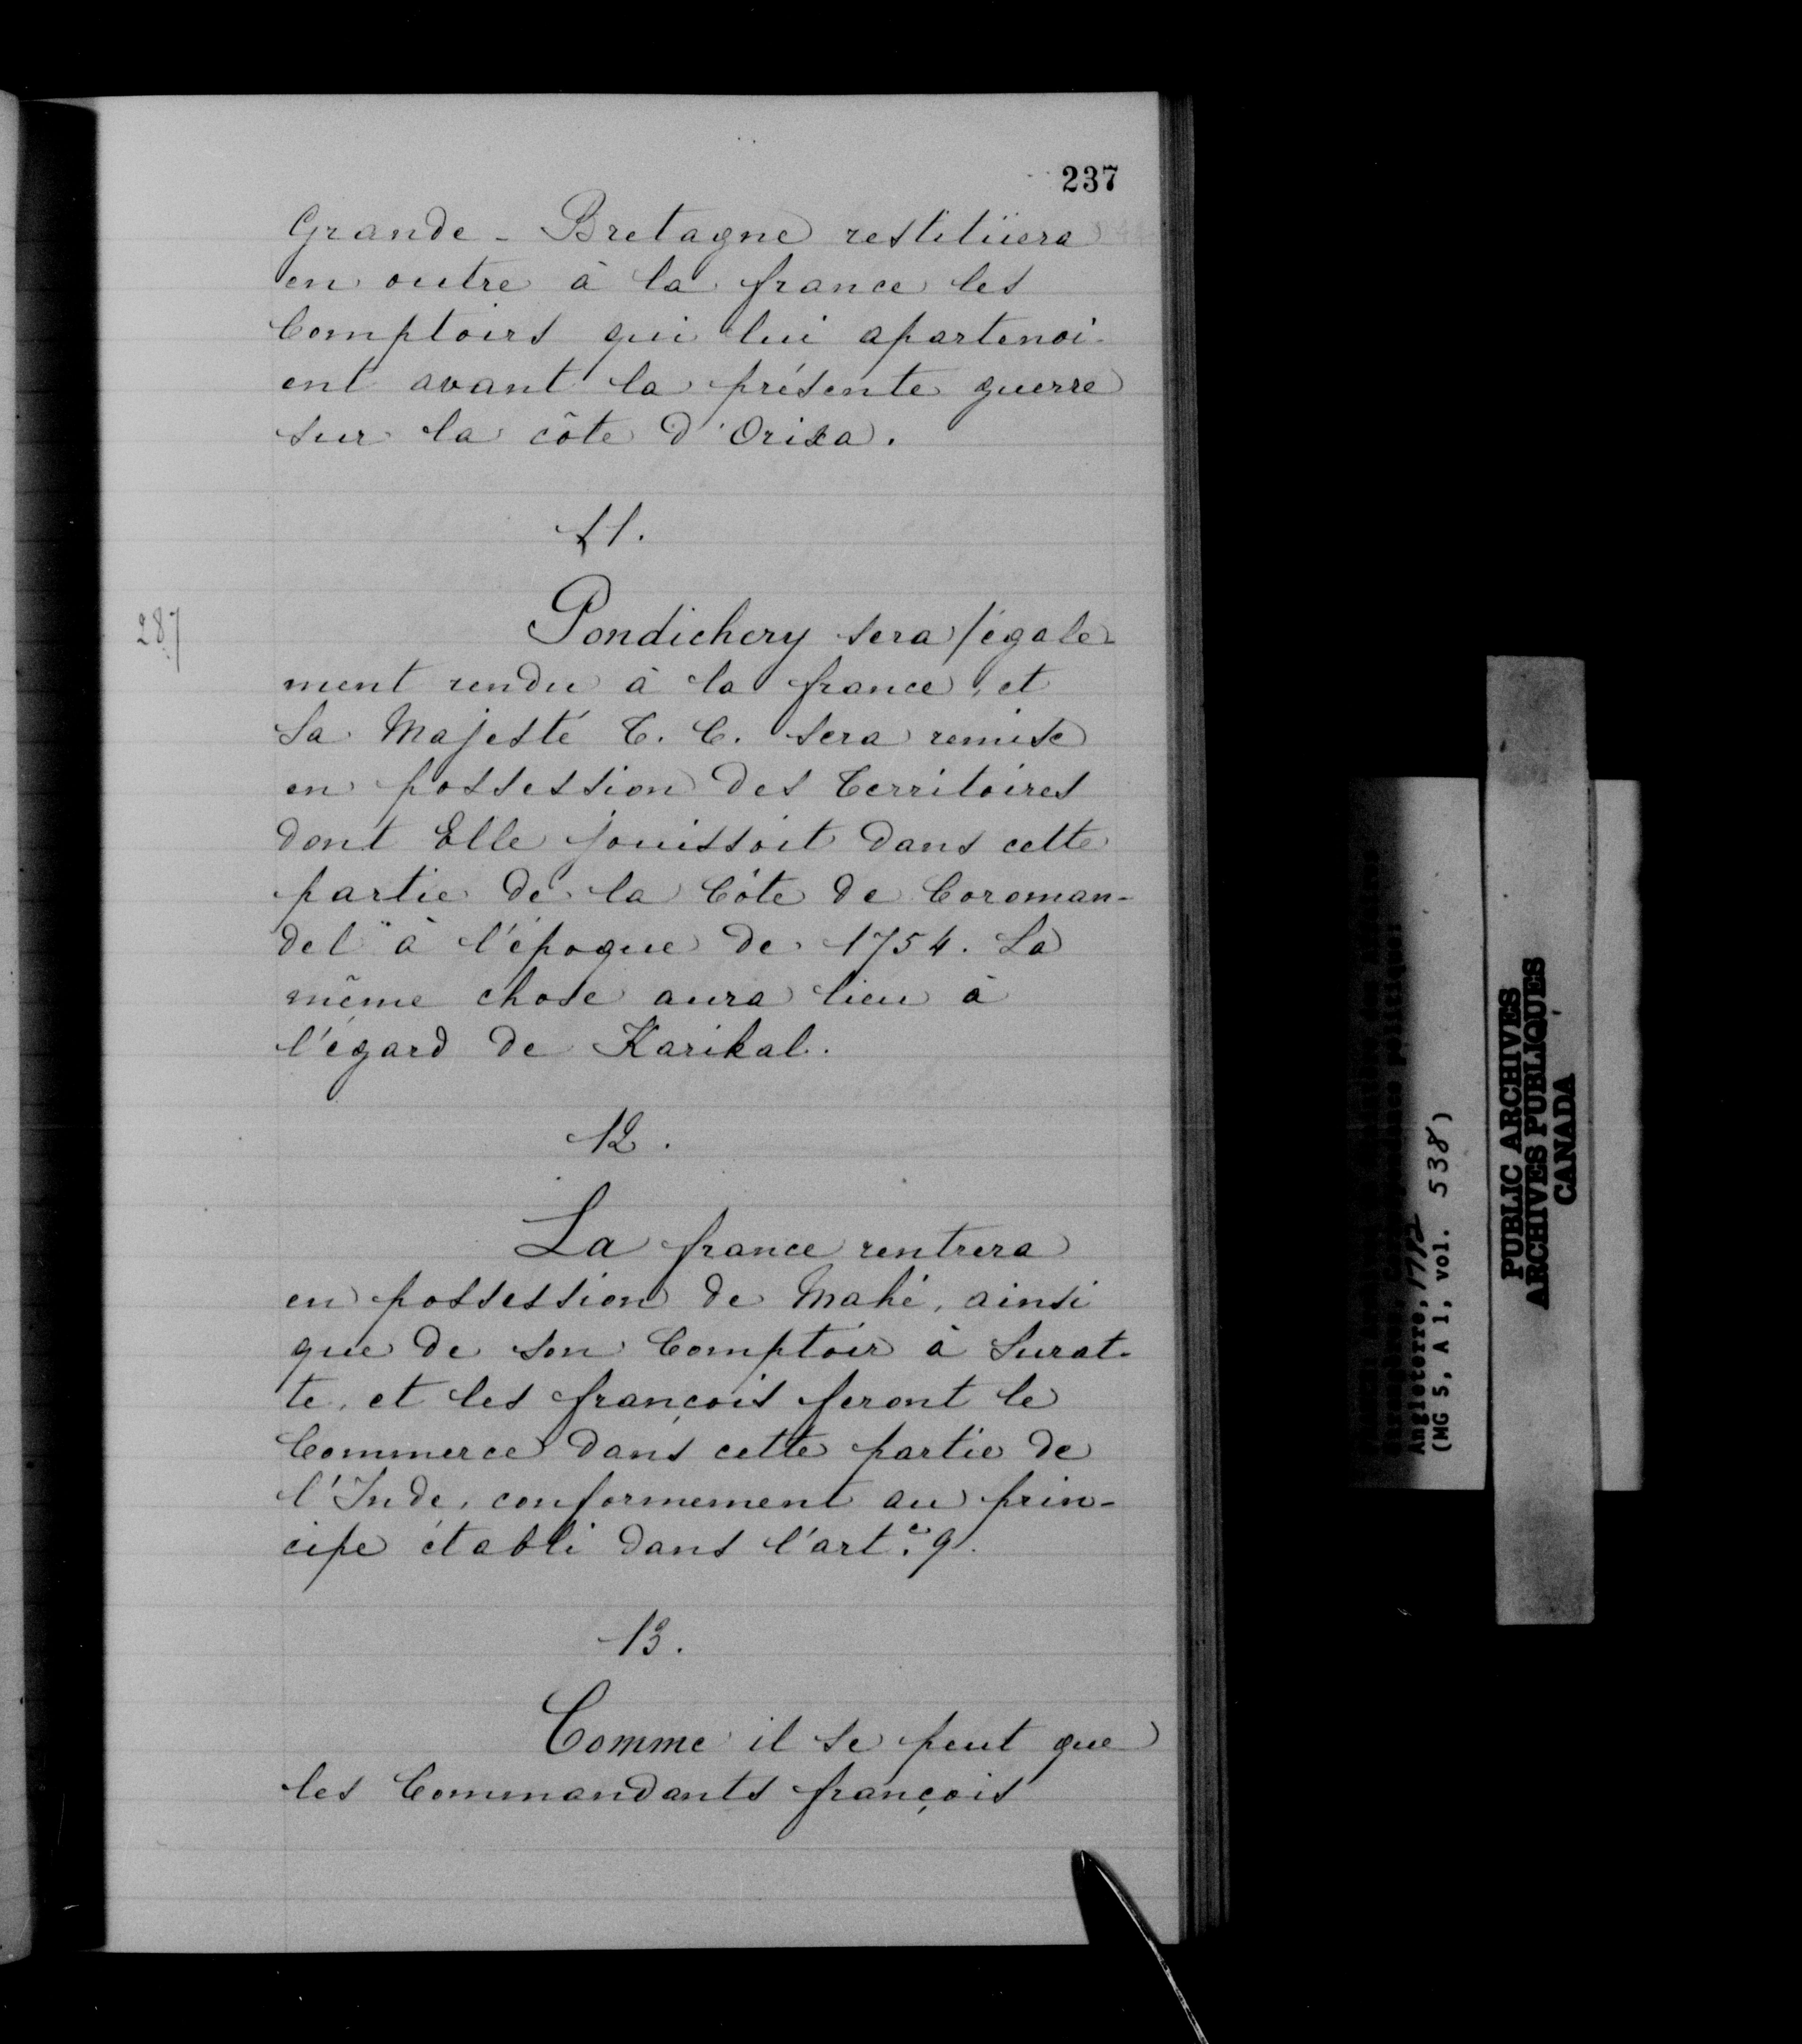 237
Grande-Bretagne restitüera
en outre à la france les
Comptoirs qui lui apartenoi-
ent avant la présente guerre
sur la côte d'Orixa.
11.
287
Pondichery sera / égale-
ment rendu à la france, et
Sa Majesté T. C. sera remise
en possession des Territoires
dont Elle jouissoit dans cette
partie de la Côte de Coroman-
del à l'époque de 1754. La
même chose aura lieu à
l'égard de Karikal.
12.
La france rentrera
en possession de Mahé, ainsi
que de son Comptoir à Surat-
te, et les françois feront le
Commerce dans cette partie de
l'Inde, conformement au prin-
cipe établi dans l'art.e 9.
13.
Comme il se peut que
les Commandants françois
Angleterre,
(MG 5, A 1, vol. 538)
PUBLIC ARCHIVES
ARCHIVES PUBLIQUES
CANADA